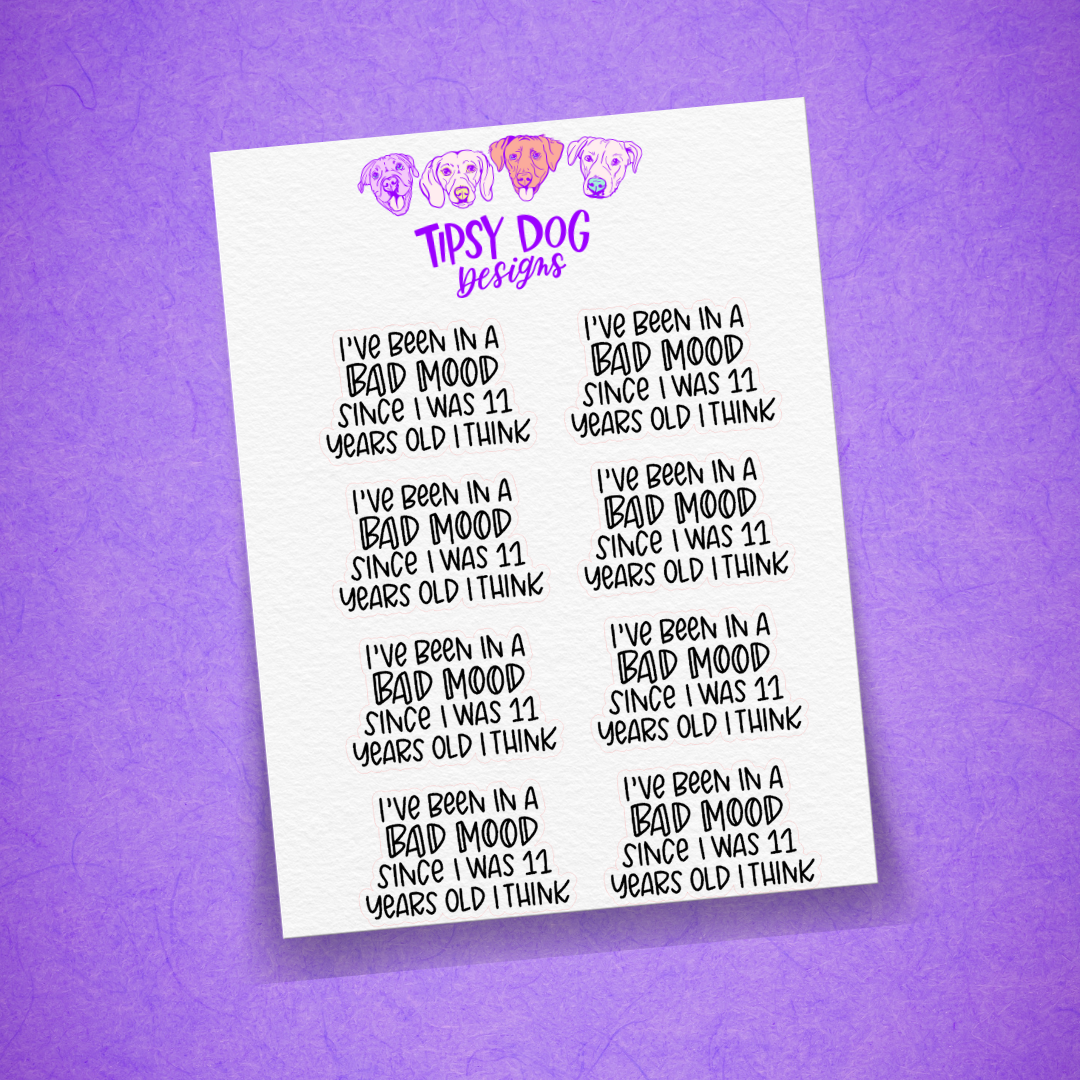 TIPSY DOG
Designs
I'VE BEEN IN A
BAD MOOD
SINCE I WAS 11
YEARS OLD I THINK
I'VE BEEN IN A
BAD MOOD
SINCE I WAS 11
YEARS OLD I THINK
I'VE BEEN IN A
BAD MOOD
SINCE I WAS 11
YEARS OLD I THINK
I'VE BEEN IN A
BAD MOOD
SINCE I WAS 11
YEARS OLD I THINK
I'VE BEEN IN A
BAD MOOD
SINCE I WAS 11
YEARS OLD I THINK
I'VE BEEN IN A
BAD MOOD
SINCE I WAS 11
YEARS OLD I THINK
I'VE BEEN IN A
BAD MOOD
SINCE I WAS 11
YEARS OLD I THINK
I'VE BEEN IN A
BAD MOOD
SINCE I WAS 11
YEARS OLD I THINK